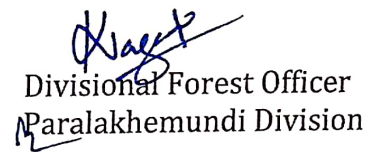 Divisional Forest Officer
Paralakhemundi Division